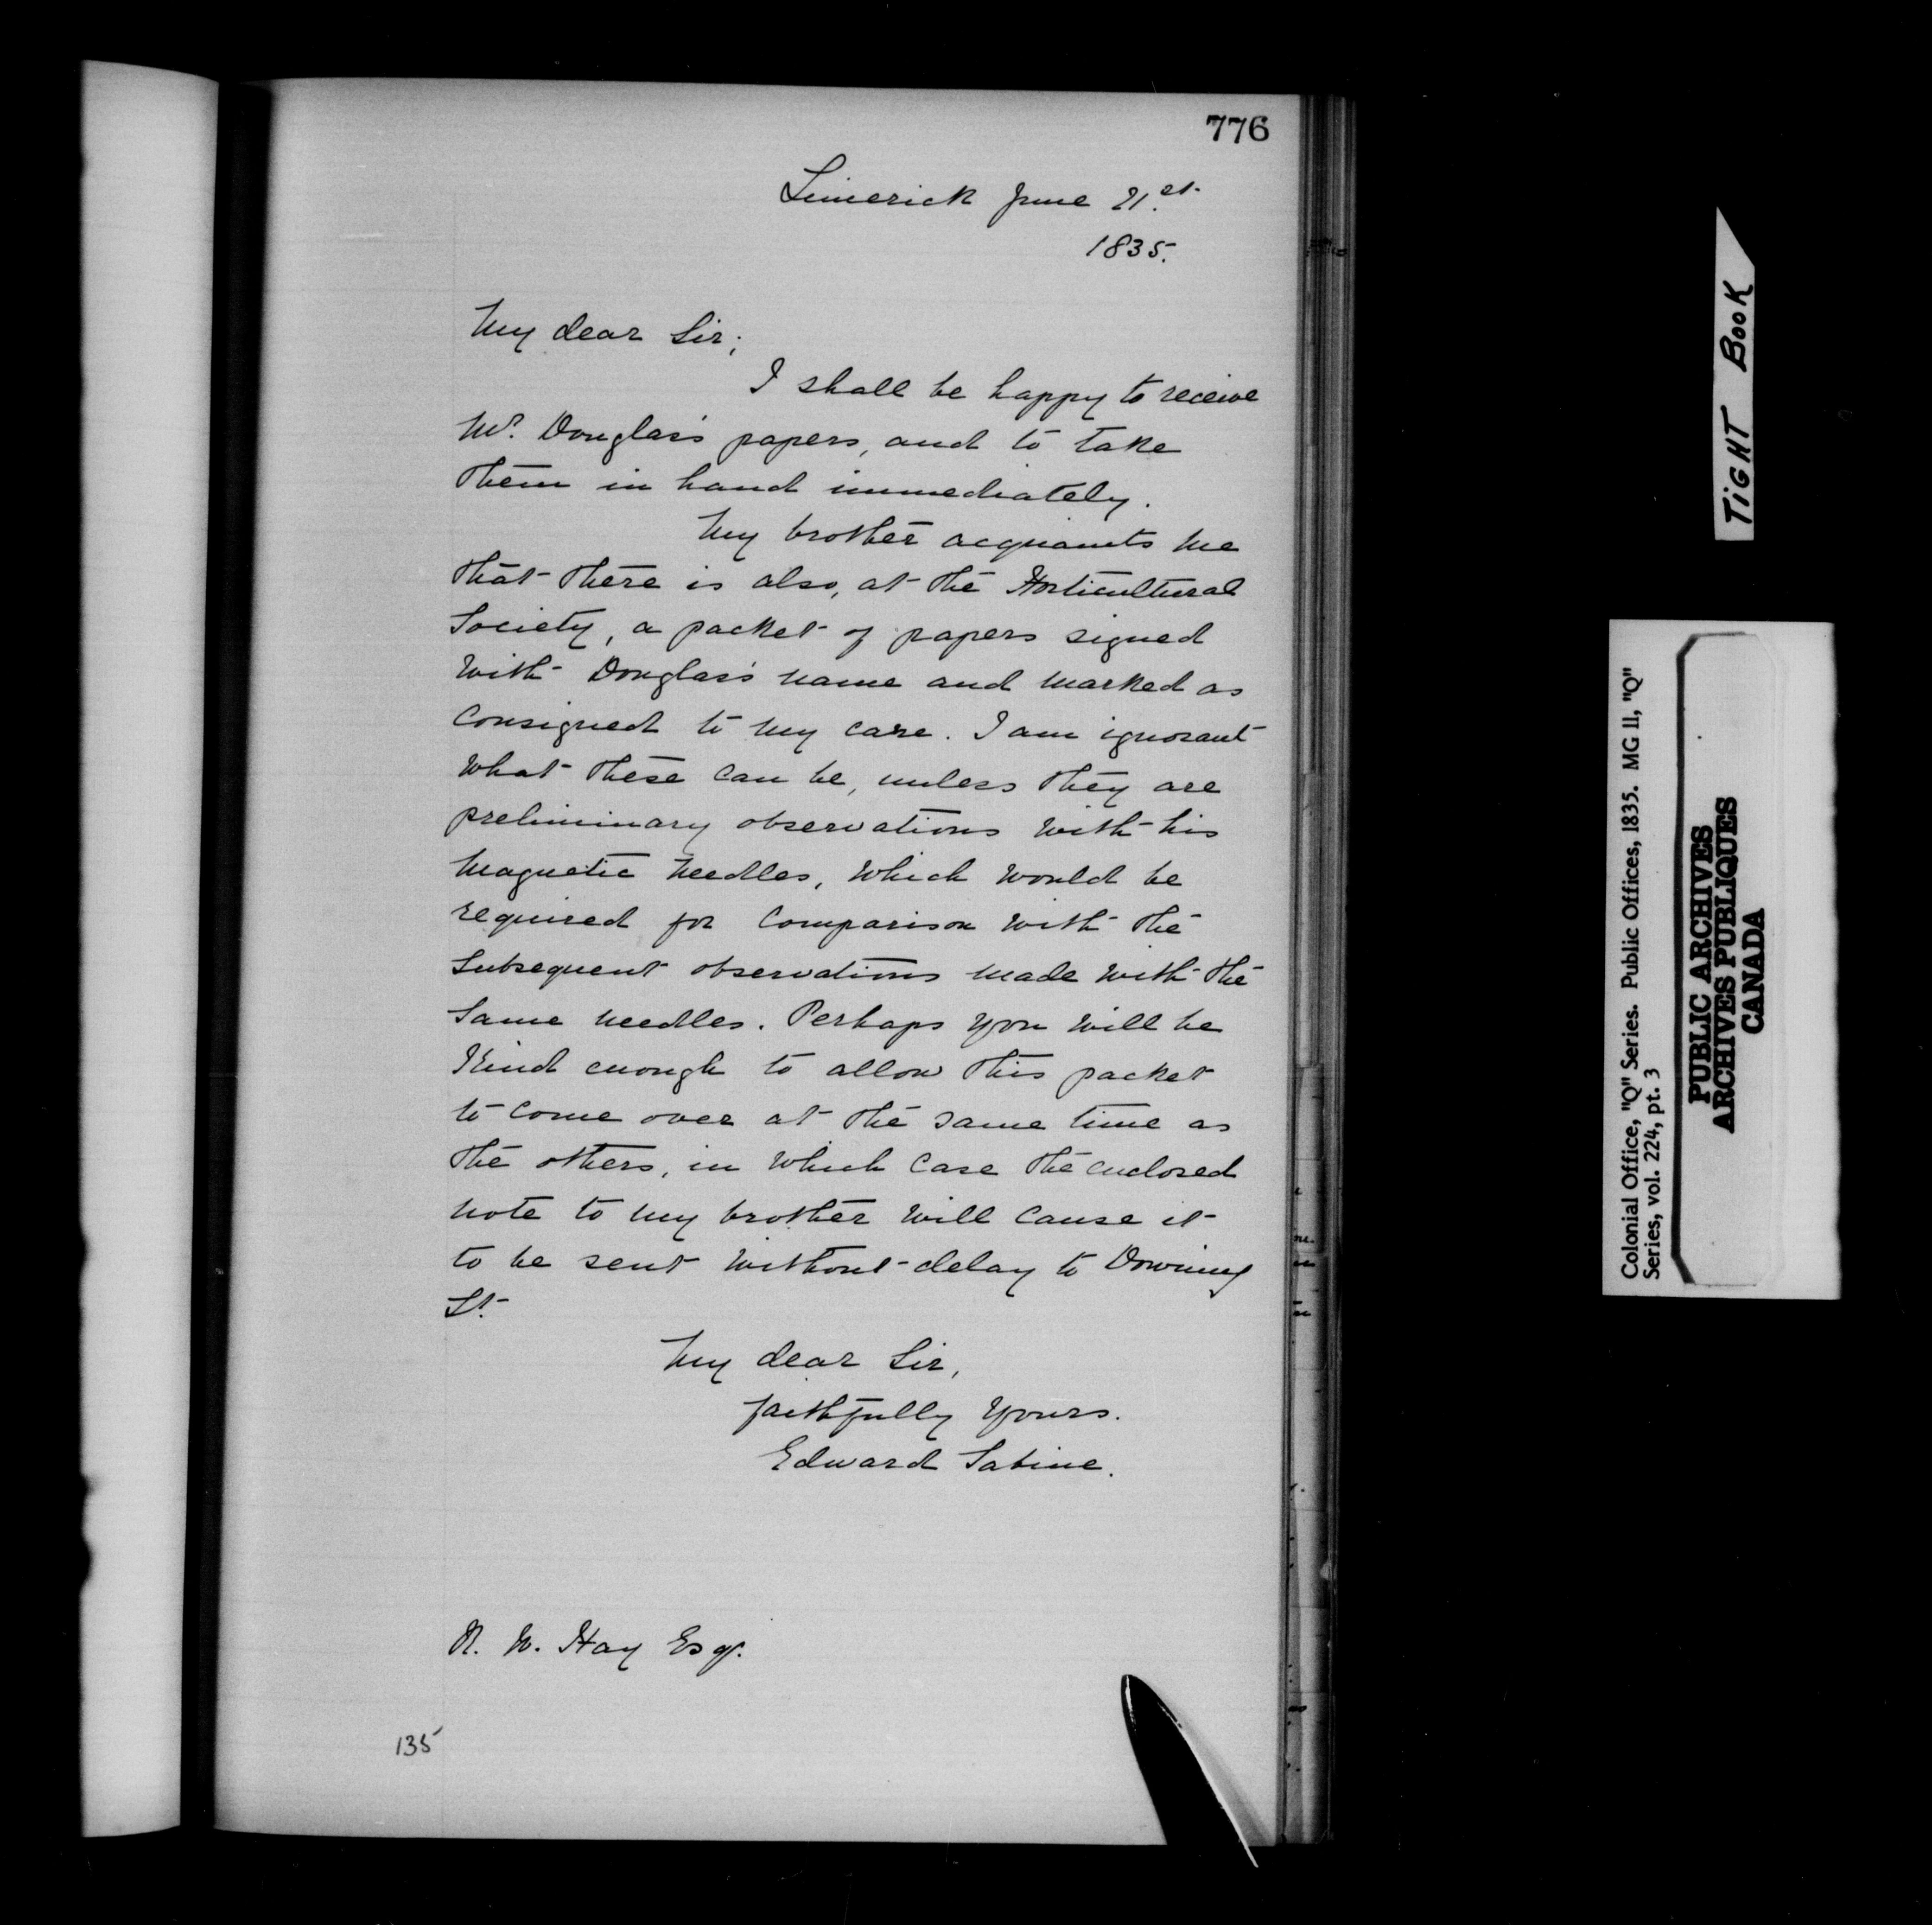 776
Limerick June 21st.
1835.
My dear Sir;
I shall be happy to receive
Mr. Douglas's papers, and to take
them in hand immediately.
My brother acquaints me
that there is also, at the Horticultural
Society, a packet of papers signed
with Douglas's name and marked as
consigned to my care. I am ignorant
what these can be, unless they are
preliminary observations with his
magnetic needles, which would be
required for comparison with the
subsequent observations made with the
same needles. Perhaps you will be
kind enough to allow this packet
to come over at the same time as
the others, in which case the enclosed
note to my brother will cause it
to be sent without delay to Downing
St.
My dear Sir,
faithfully yours.
Edward Sabine.
R. W. Hay Esqr.
135
TIGHT BOOK
Colonial Office, "Q" Series. Public Offices, 1835. MG 11, "Q"
Series, vol. 224, pt. 3
PUBLIC ARCHIVES
ARCHIVES PUBLIQUES
CANADA